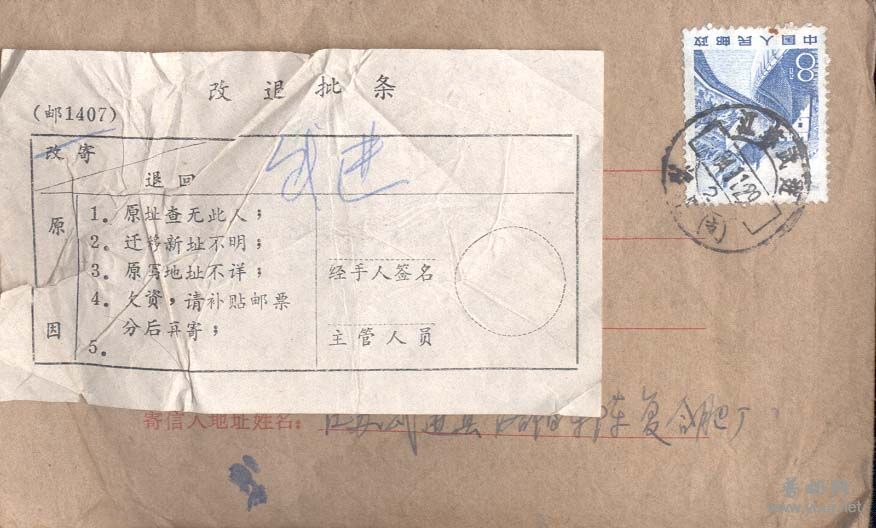 中国人民邮政
8分
改退批条
(邮1407)
改寄
退回
原因
1。原址查无此人；
2。迁移新址不明；
3。原写地址不详；
4。欠资，请补贴邮票
分后再寄；
5。
经手人签名
主管人员
寄信人地址姓名：江苏武进县 复合肥厂
普邮网